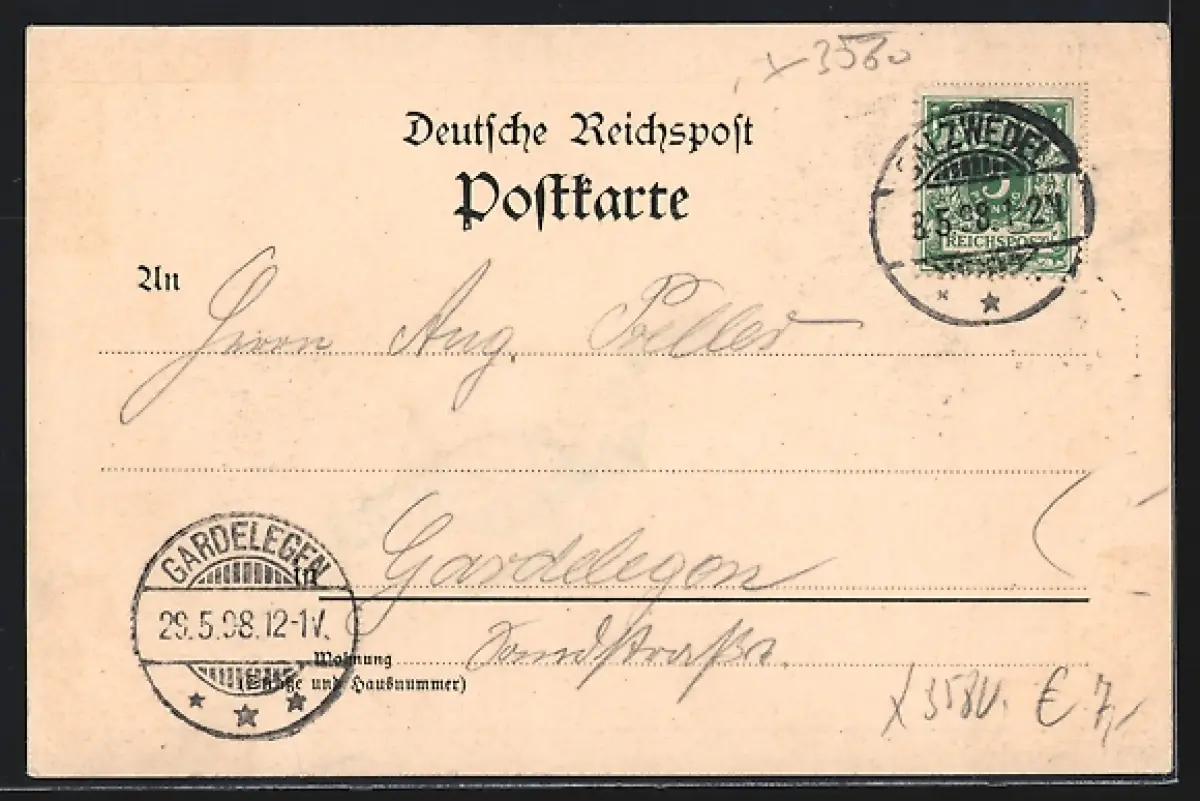 x 3580
Deutsche Reichspost
Postkarte
SALZWEDEL
8.5.98.1-2N
5
REICHSPOST
An
Herrn Aug.
in
Gardelegen
GARDELEGEN
29.5.98.12-1V.
Wohnung
(Straße und Hausnummer)
Sandstraße.
x 3580. € 7,-